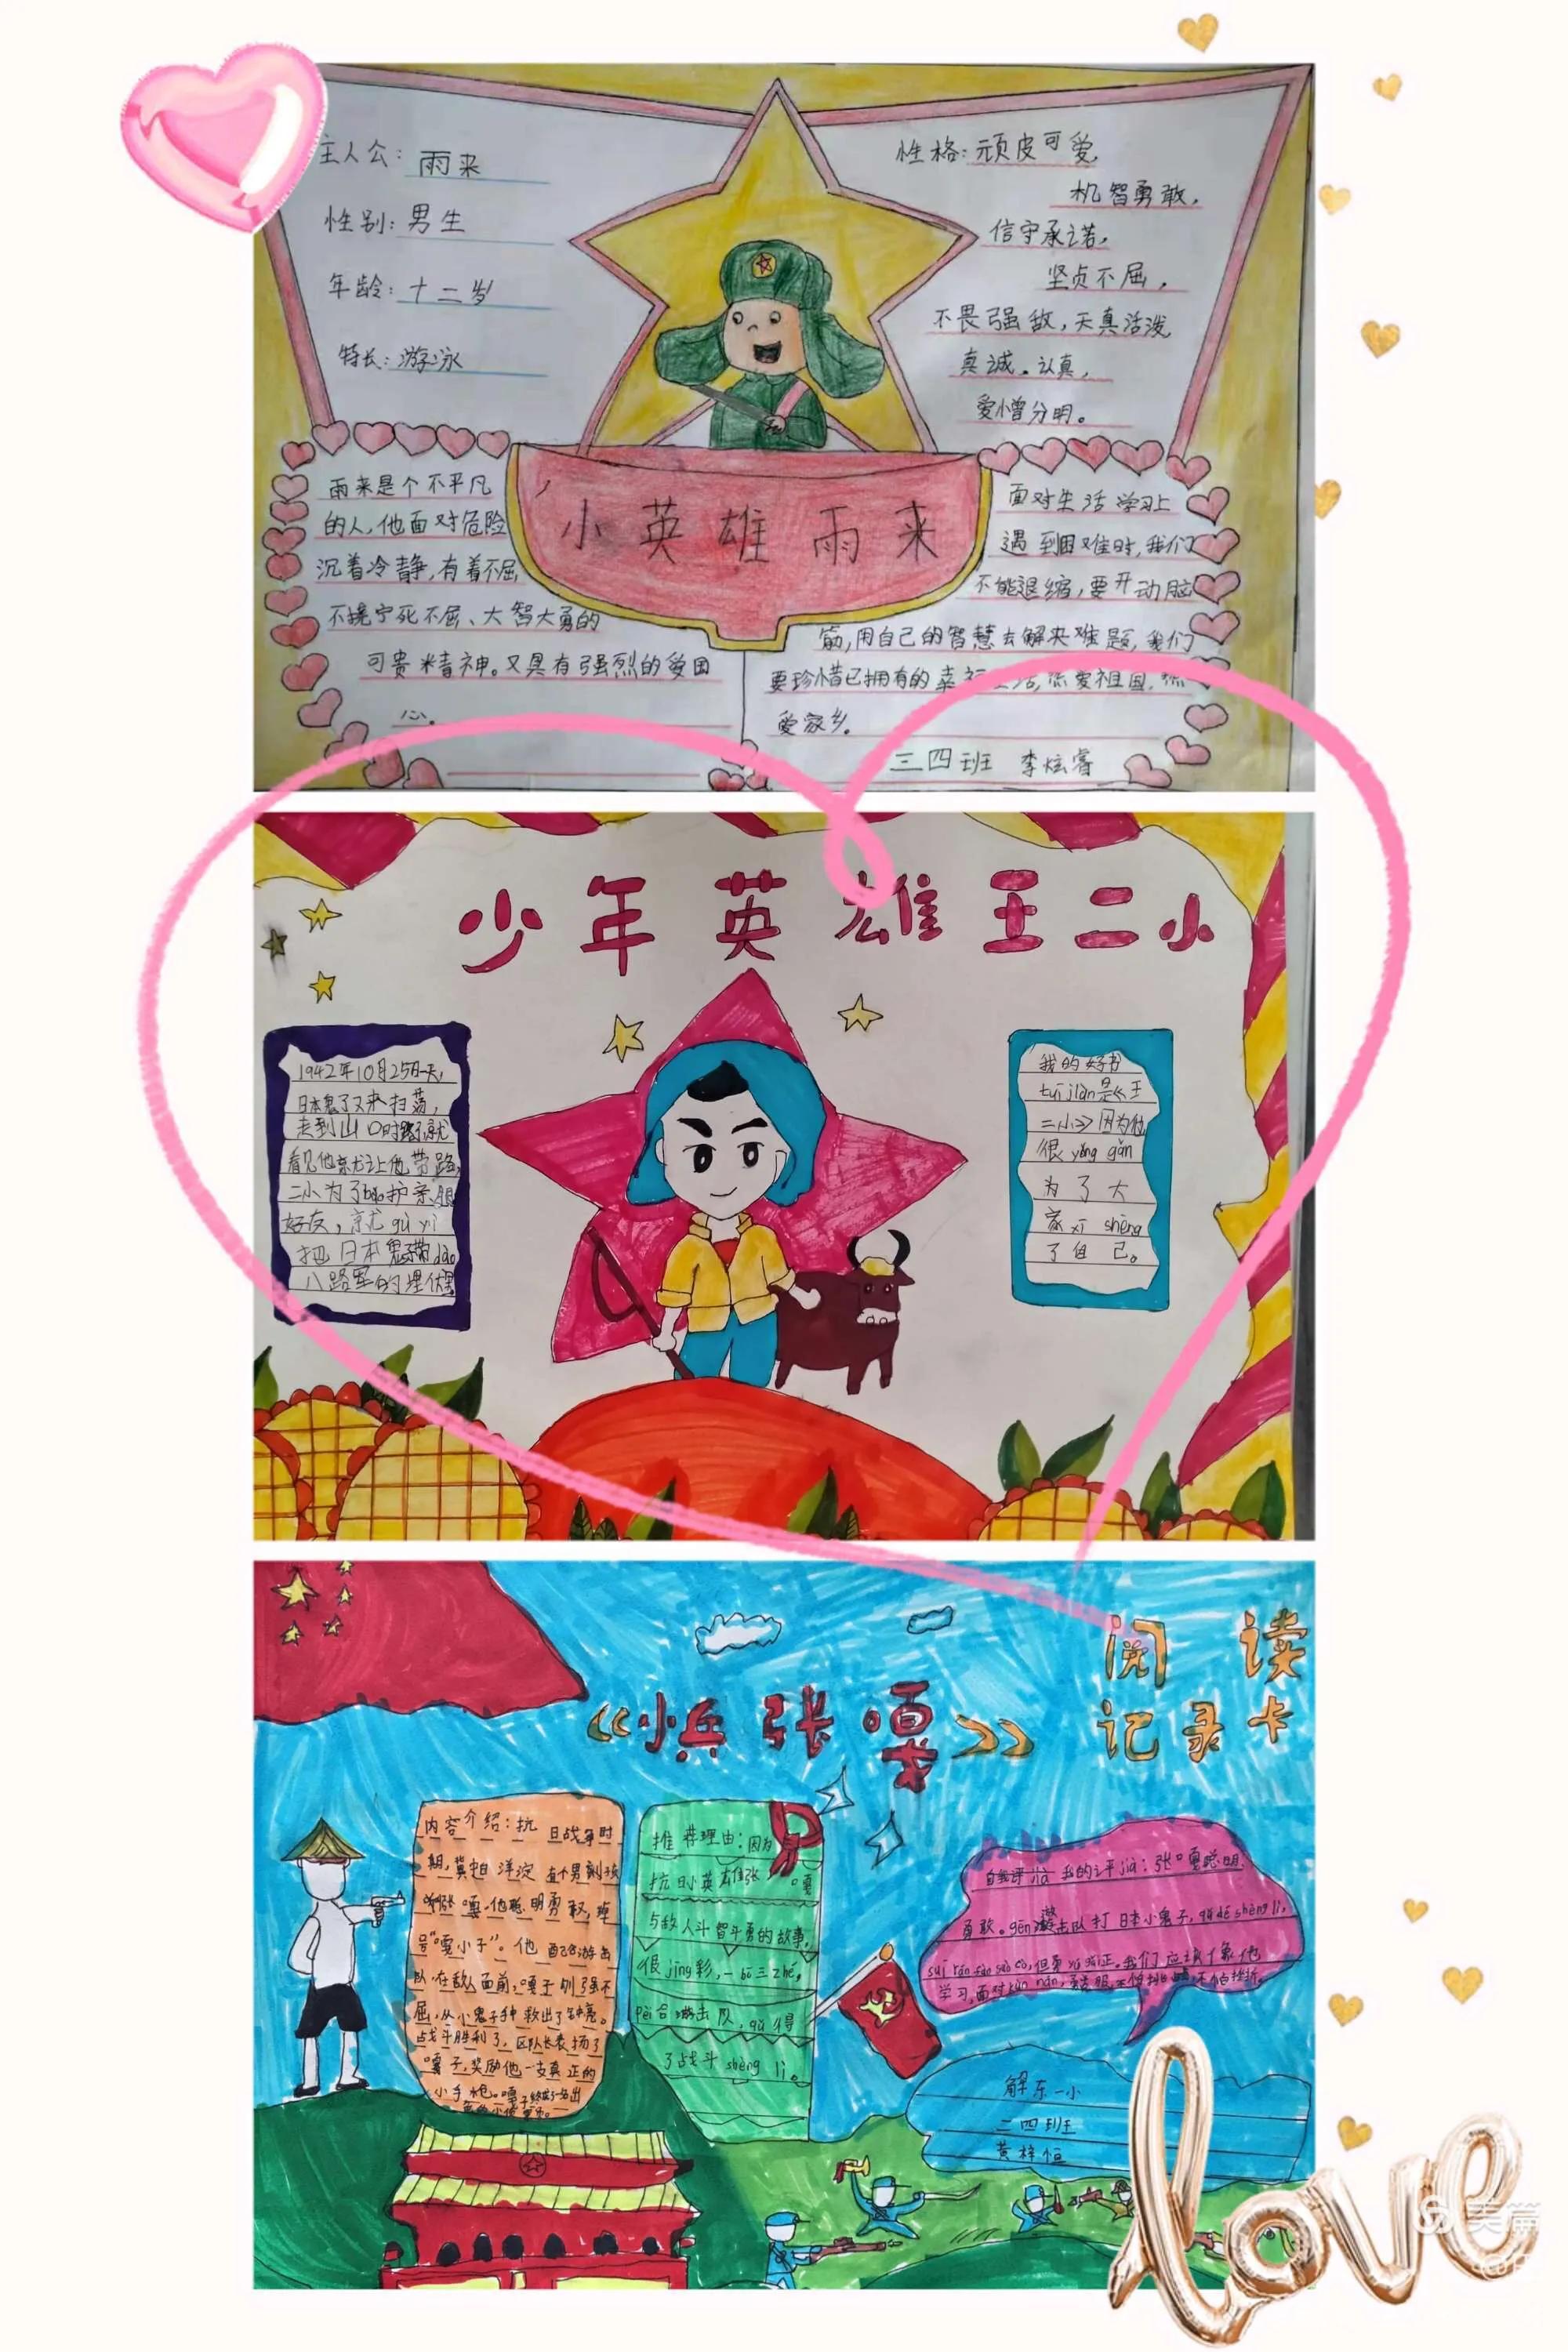 主人公:雨来
性别:男生
年龄:十二岁
特长:游泳
性格:顽皮可爱,
机智勇敢,
信守承诺,
坚贞不屈,
不畏强敌,天真活泼
真诚。认真,
爱憎分明。
小英雄雨来
雨来是个不平凡
的人,他面对危险
沉着冷静,有着不屈
不挠宁死不屈、大智大勇的
可贵精神。又具有强烈的爱国
心。
面对生活学习上
遇到困难时,我们
不能退缩,要开动脑
筋,用自己的智慧去解决难题,我们
要珍惜已拥有的幸福生活,热爱祖国,热
爱家乡。
三四班 李炫睿
少年英雄王二小
1942年10月25日一天,
日本鬼子又来扫荡,
走到山口时就
看见他就让他带路,
二小为了bǎo护亲朋
好友,就gù yì
把日本鬼子带dào
八路军的埋伏
我的好书
tuī jiàn是《王
二小》因为他
很yǒng gǎn
为了大
家xī shēng
了自己。
阅读
记录卡
《小兵张嘎》
内容介绍:抗日战争时
期,洋淀有个男孩
张嘎,他聪明勇敢,
号"嘎小子"。他配合游击
队,在敌人面前,嘎子刚强不
屈,从小鬼子手中救出了钟亮。
战斗胜利了,区队长表扬了
嘎子,奖励他一支真正的
小手枪。嘎子
推荐理由:因为
抗日小英雄张嘎
与敌人斗智斗勇的故事,
很jīng彩,
pèi合游击队,qǔ得
了战斗shèng lì。
我的评jià:张嘎聪明
勇敢。gēn游击队打日本小鬼子,qǔ dé shèng lì,
suī rán
学习,面对kùn nán,
解东一小
二四班
黄梓恒
love
美篇